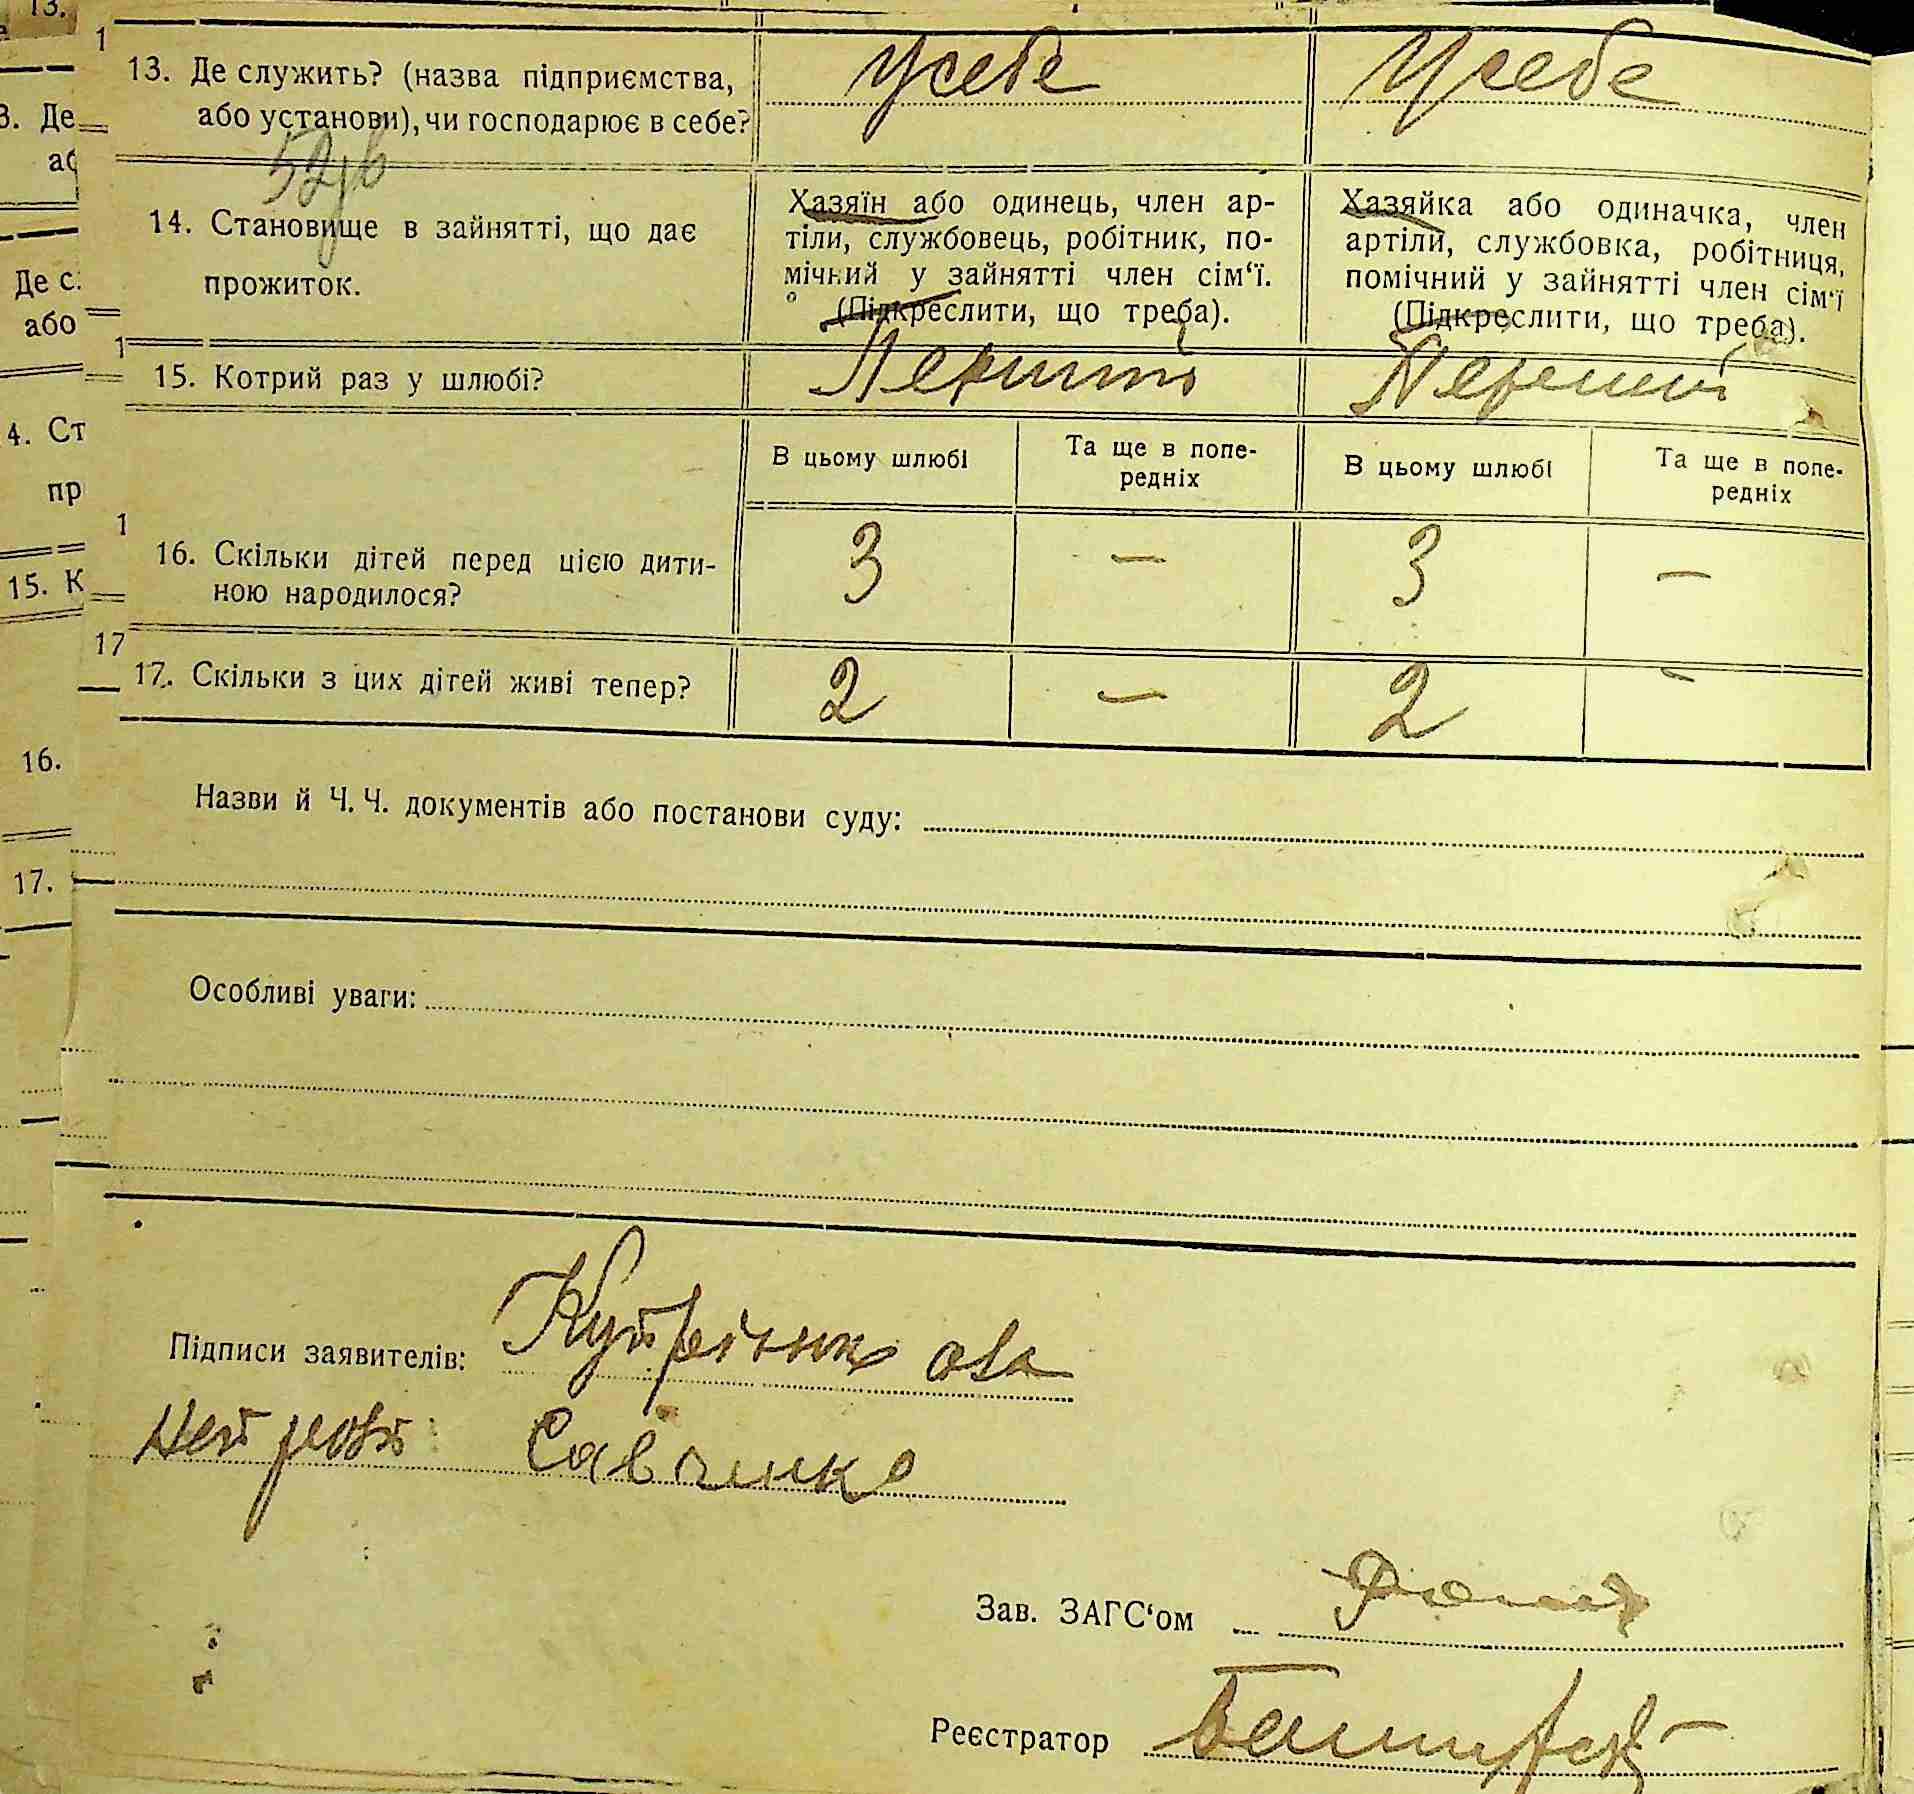 13. Де служить? (назва підприємства, або установи), чи господарює в себе?
Усебе
Усебе
14. Становище в зайнятті, що дає прожиток.
Хазяїн або одинець, член ар-
тіли, службовець, робітник, по-
мічний у зайнятті член сім‘ї.
(Підкреслити, що треба).
Хазяйка або одиначка, член
артіли, службовка, робітниця,
помічний у зайнятті член сім‘ї
(Підкреслити, що треба).
15. Котрий раз у шлюбі?
В цьому шлюбі
Та ще в попе-
редніх
В цьому шлюбі
Та ще в попе-
редніх
16. Скільки дітей перед цією дити-
ною народилося?
3 — 3 —
17. Скільки з цих дітей живі тепер?
2 — 2 -
Назви й Ч. Ч. документів або постанови суду:
Особливі уваги:
Підписи заявителів:
Савченко
Зав. ЗАГС‘ом
Реєстратор